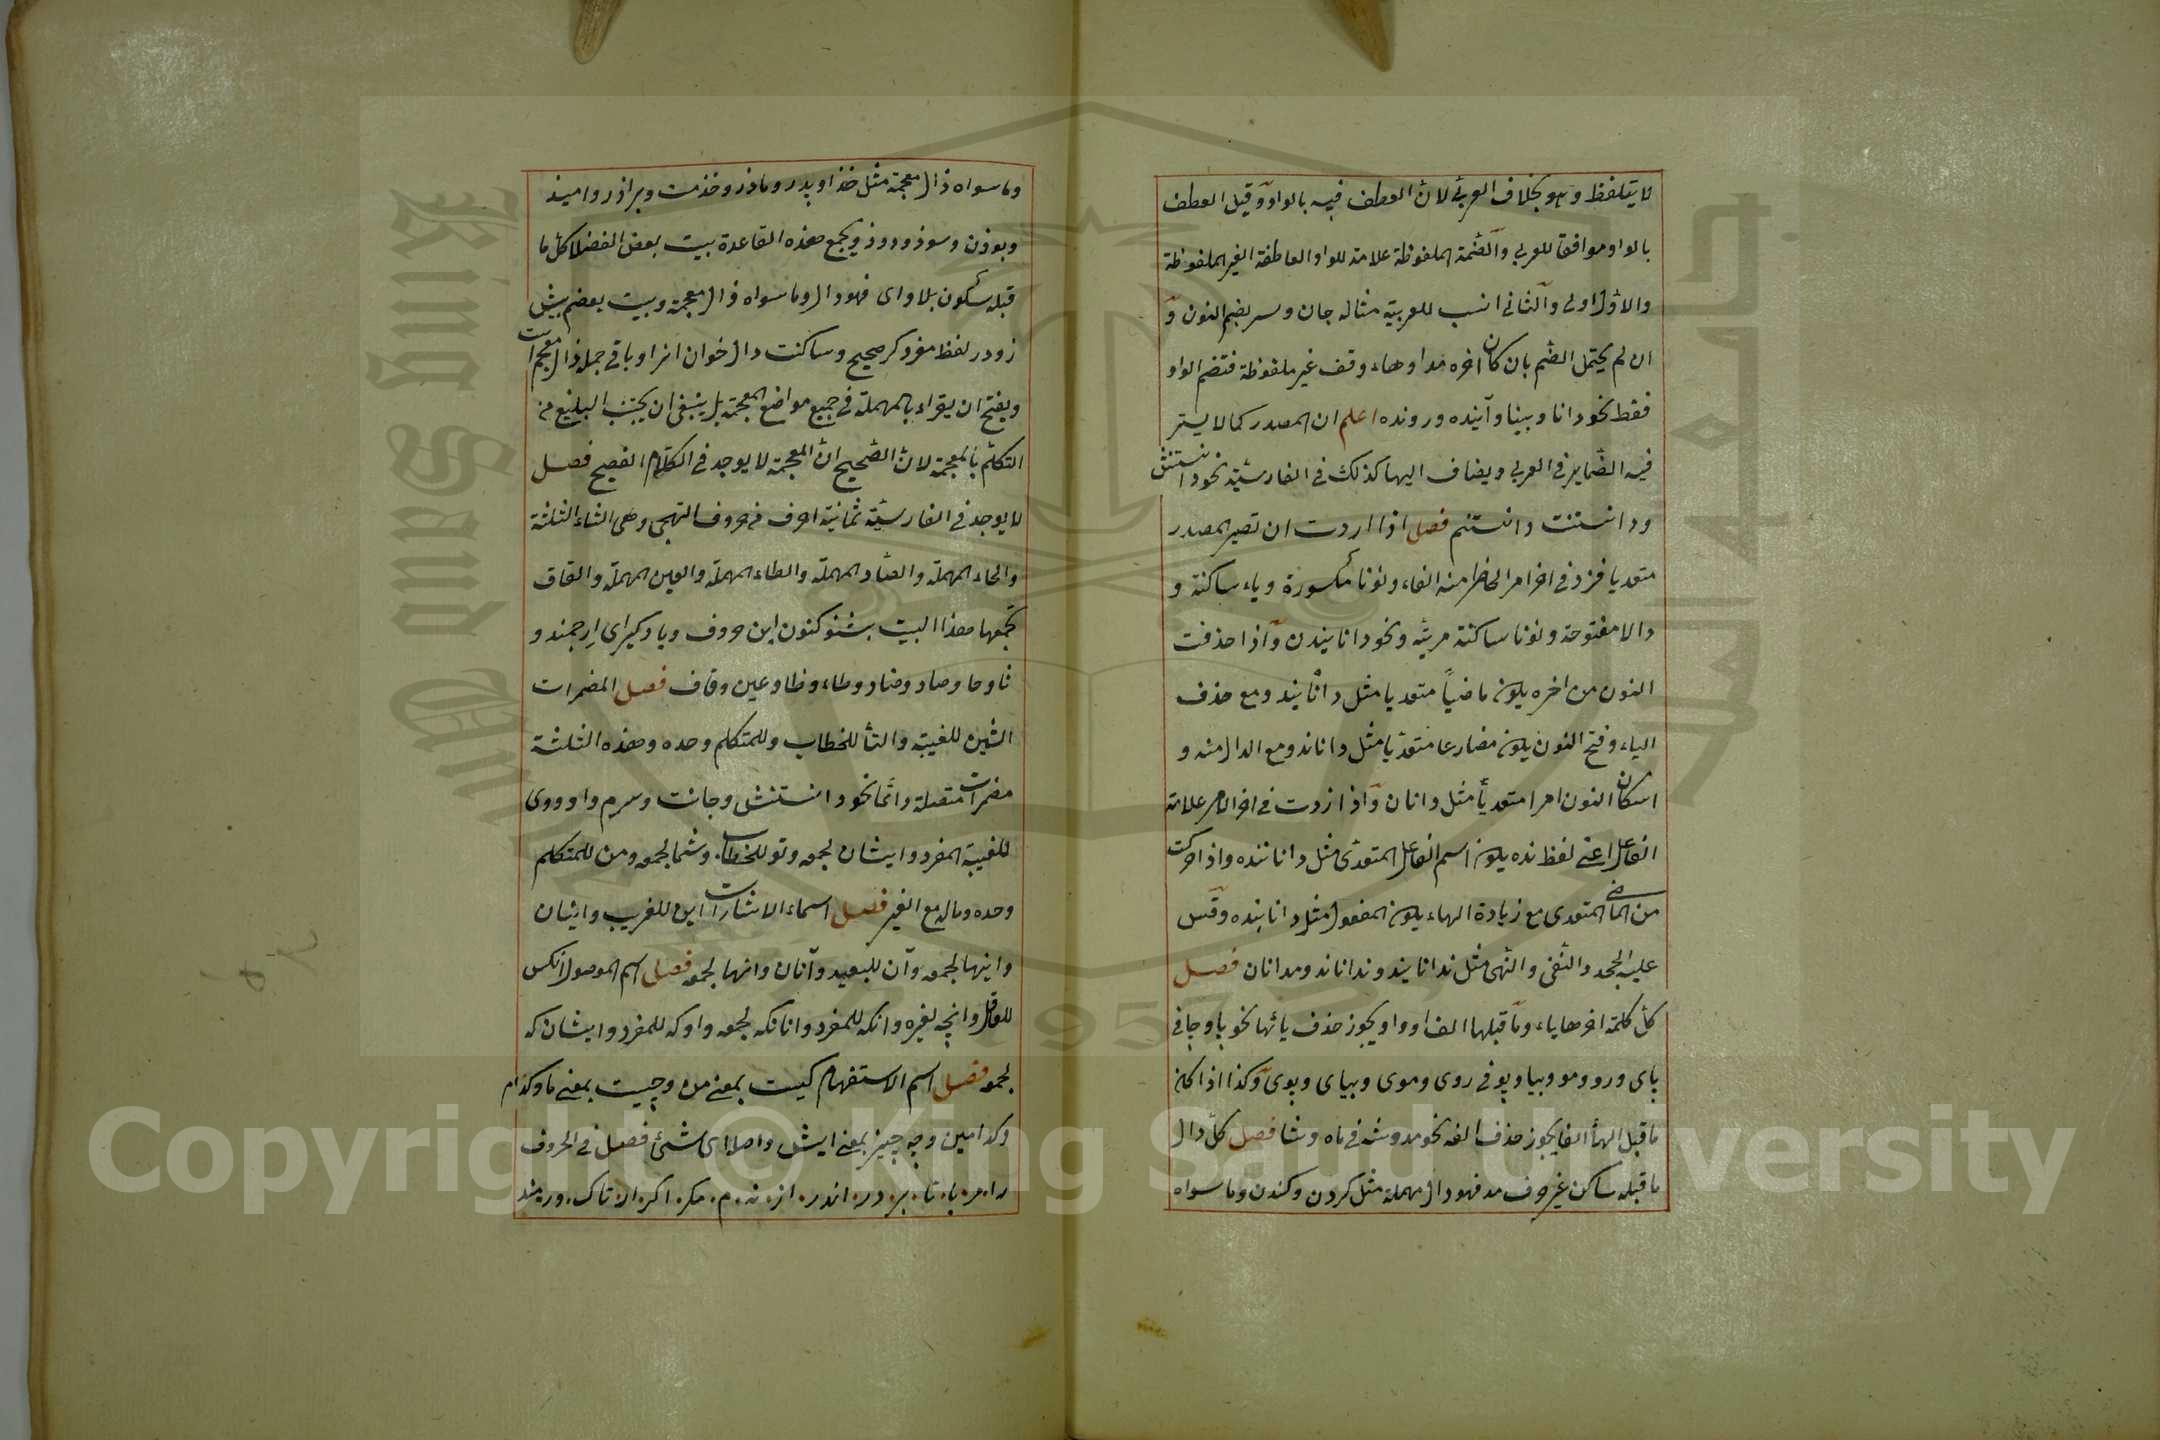 لا يتلفظ وهو بخلاف العربي لان العطف فيه بالواو وقيل العطف
بالواو موافقا للعربي والضمة الملفوظة علامة للواو العاطفة الغير الملفوظة
والاول اولى والثاني انسب للعربية مثاله جان وسر بضم النون و
ان لم يحتمل الضم بان كان اخره مدا وهاء وقف غير ملفوظة فتضم الواو
فقط نحو دانا وبينا وآينده ورونده اعلم ان المصدر كما لا يستتر
فيه الضماير في العربي ويضاف اليها كذلك في الفارسية نحو دانستنش
ودانستنت دانستنم فصل اذا اردت ان تصير المصدر
متعديا فزد في اخر امر الحاضر منه الفا ونونا مكسورة وياء ساكنة و
دالا مفتوحة ونونا ساكنة مرتبة ونحو دانانيدن واذا حذفت
النون من اخره يكون ماضيا متعديا مثل دانانيد ومع حذف
الياء وفتح النون يكون مضارعا متعديا مثل داناند ومع الدال منه و
اسكان النون امرا متعديا مثل دانان واذا زدت في اخر الامر علامة
الفاعل اعني لفظ نده يكون اسم الفاعل المتعدى مثل داناننده واذا حركت
من الماضي المتعدى مع زيادة الهاء يكون المفعول مثل دانانيده وقس
عليه الجحد والنفى والنهى مثل ندانانيد ونداناند ومدانان فصل
كل كلمة اخرها ياء وما قبلها الف او واو يجوز حذف يائها نحو پا وجا في
پاى ورو ومو وبيا وبو في روى وموى وبياى وبوى وكذا اذا كان
ما قبل الهاء الفا يجوز حذف الفه نحو مه وشه في ماه وشاه فصل كل دال
ما قبله ساكن غير حرف مد فهو دال مهملة مثل كردن وكندن وما سواه
وما سواه ذال معجمة مثل خذا وپدر وماذر وخذمت وبراذر واميذ
وبوذن وسوذ وروذ ويجمع هذه القاعدة بيت بعض الفضلا كل ما
قبله سكون بلا واى فهو دال وما سواه ذال معجمة وبيت بعضهم بيش
زو در لفظ مفرد كر صحيح وساكنت دال خوان انرا وباقى جمله ذال معجم است
ويفتح ان يقراء بالمهملة في جميع مواضع المعجمة بل ينبغى ان يجتنب البليغ من
التكلم بالمعجمة لان الصحيح ان المعجمة لا يوجد في الكلام الفصيح فصل
لا يوجد في الفارسية ثمانية احرف في حروف التهجى وهى الثاء الثلثة
والحاء المهملة والصاد المهملة والطاء المهملة والعين المهملة والقاف
تجمعها هذا البيت بشنو كنون اين حروف وياد كير اى ارجمند و
ثا وحا وصاد وضاد وطاء وظا وعين وقاف فصل المضمرات
الشين للغيبة والتأ للخطاب وللمتكلم وحده وهذه الثلثة
مضمرات متصلة دائما نحو دانستنش وجانت وسرم واو ووى
للغيبة المفرد وايشان لجمعه وتو للخطاب وشما لجمعه ومن للمتكلم
وحده وماله مع الغير فصل اسماء الاشارات اين للقريب واينان
واينها لجمعه وآن للبعيد وآنان وانها لجمعه فصل اسم الموصول انكس
للعاقل وانچه لغيره وانكه للمفرد وانانكه لجمعه واوكه للمفرد وايشان كه
لجمعه فصل اسم الاستفهام كيست بمعنى من وچيست بمعنى ما وكدام
وكدامين وچه چيز بمعنى ايش واصله اى شئ فصل في الحروف
را. مر. با. تا. بر. در. اندر. از. نه. م. مكر. اكر. الا. تاك. ور. مند
Copyright © King Saud University
King Saud University
1957